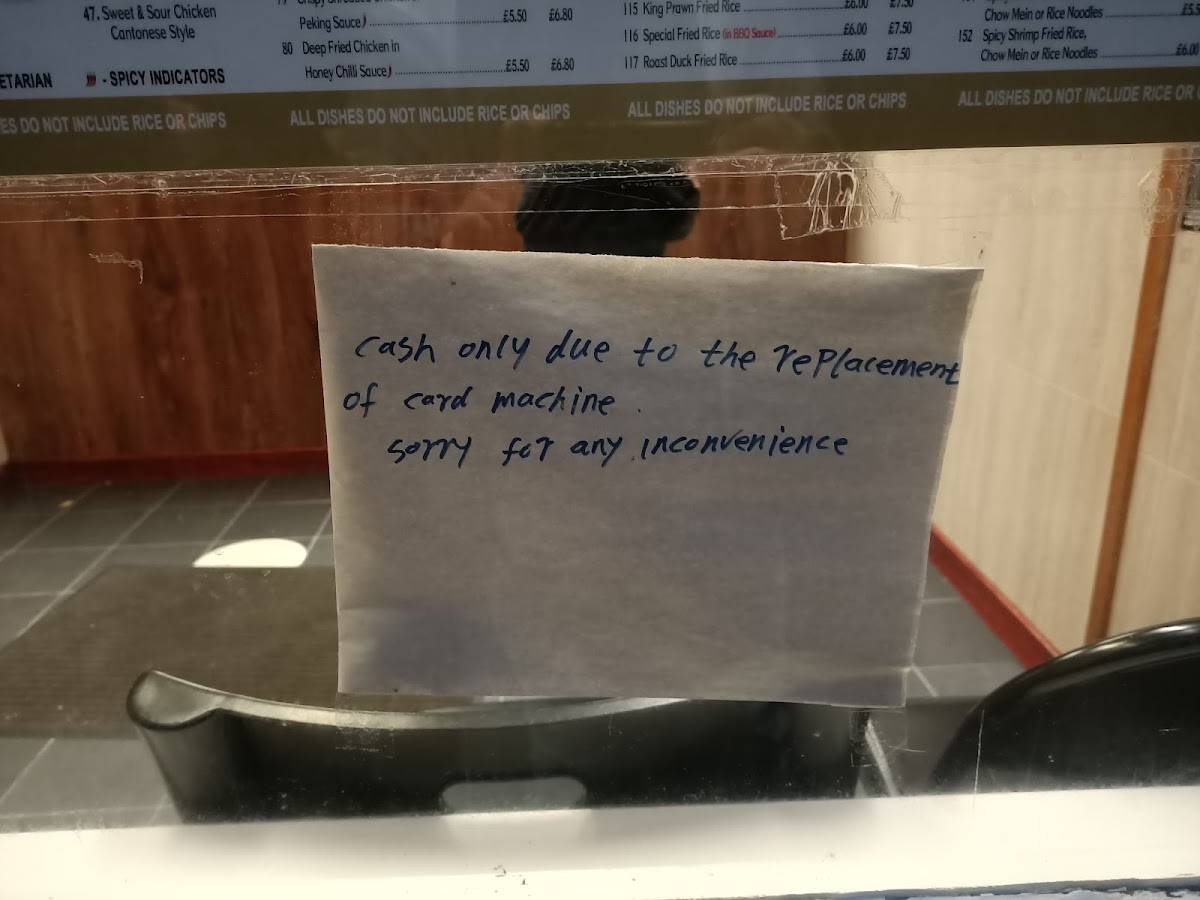 47. Sweet & Sour Chicken
Cantonese Style
ETARIAN - SPICY INDICATORS
ES DO NOT INCLUDE RICE OR CHIPS
Peking Sauce £5.50 £6.80
80 Deep Fried Chicken in
Honey Chilli Sauce £5.50 £6.80
ALL DISHES DO NOT INCLUDE RICE OR CHIPS
115 King Prawn Fried Rice £6.00 £7.50
116 Special Fried Rice (in BBQ Sauce) £6.00 £7.50
117 Roast Duck Fried Rice £6.00 £7.50
ALL DISHES DO NOT INCLUDE RICE OR CHIPS
Chow Mein or Rice Noodles
152 Spicy Shrimp Fried Rice,
Chow Mein or Rice Noodles £6.00
ALL DISHES DO NOT INCLUDE RICE OR
cash only due to the replacement
of card machine.
sorry for any inconvenience